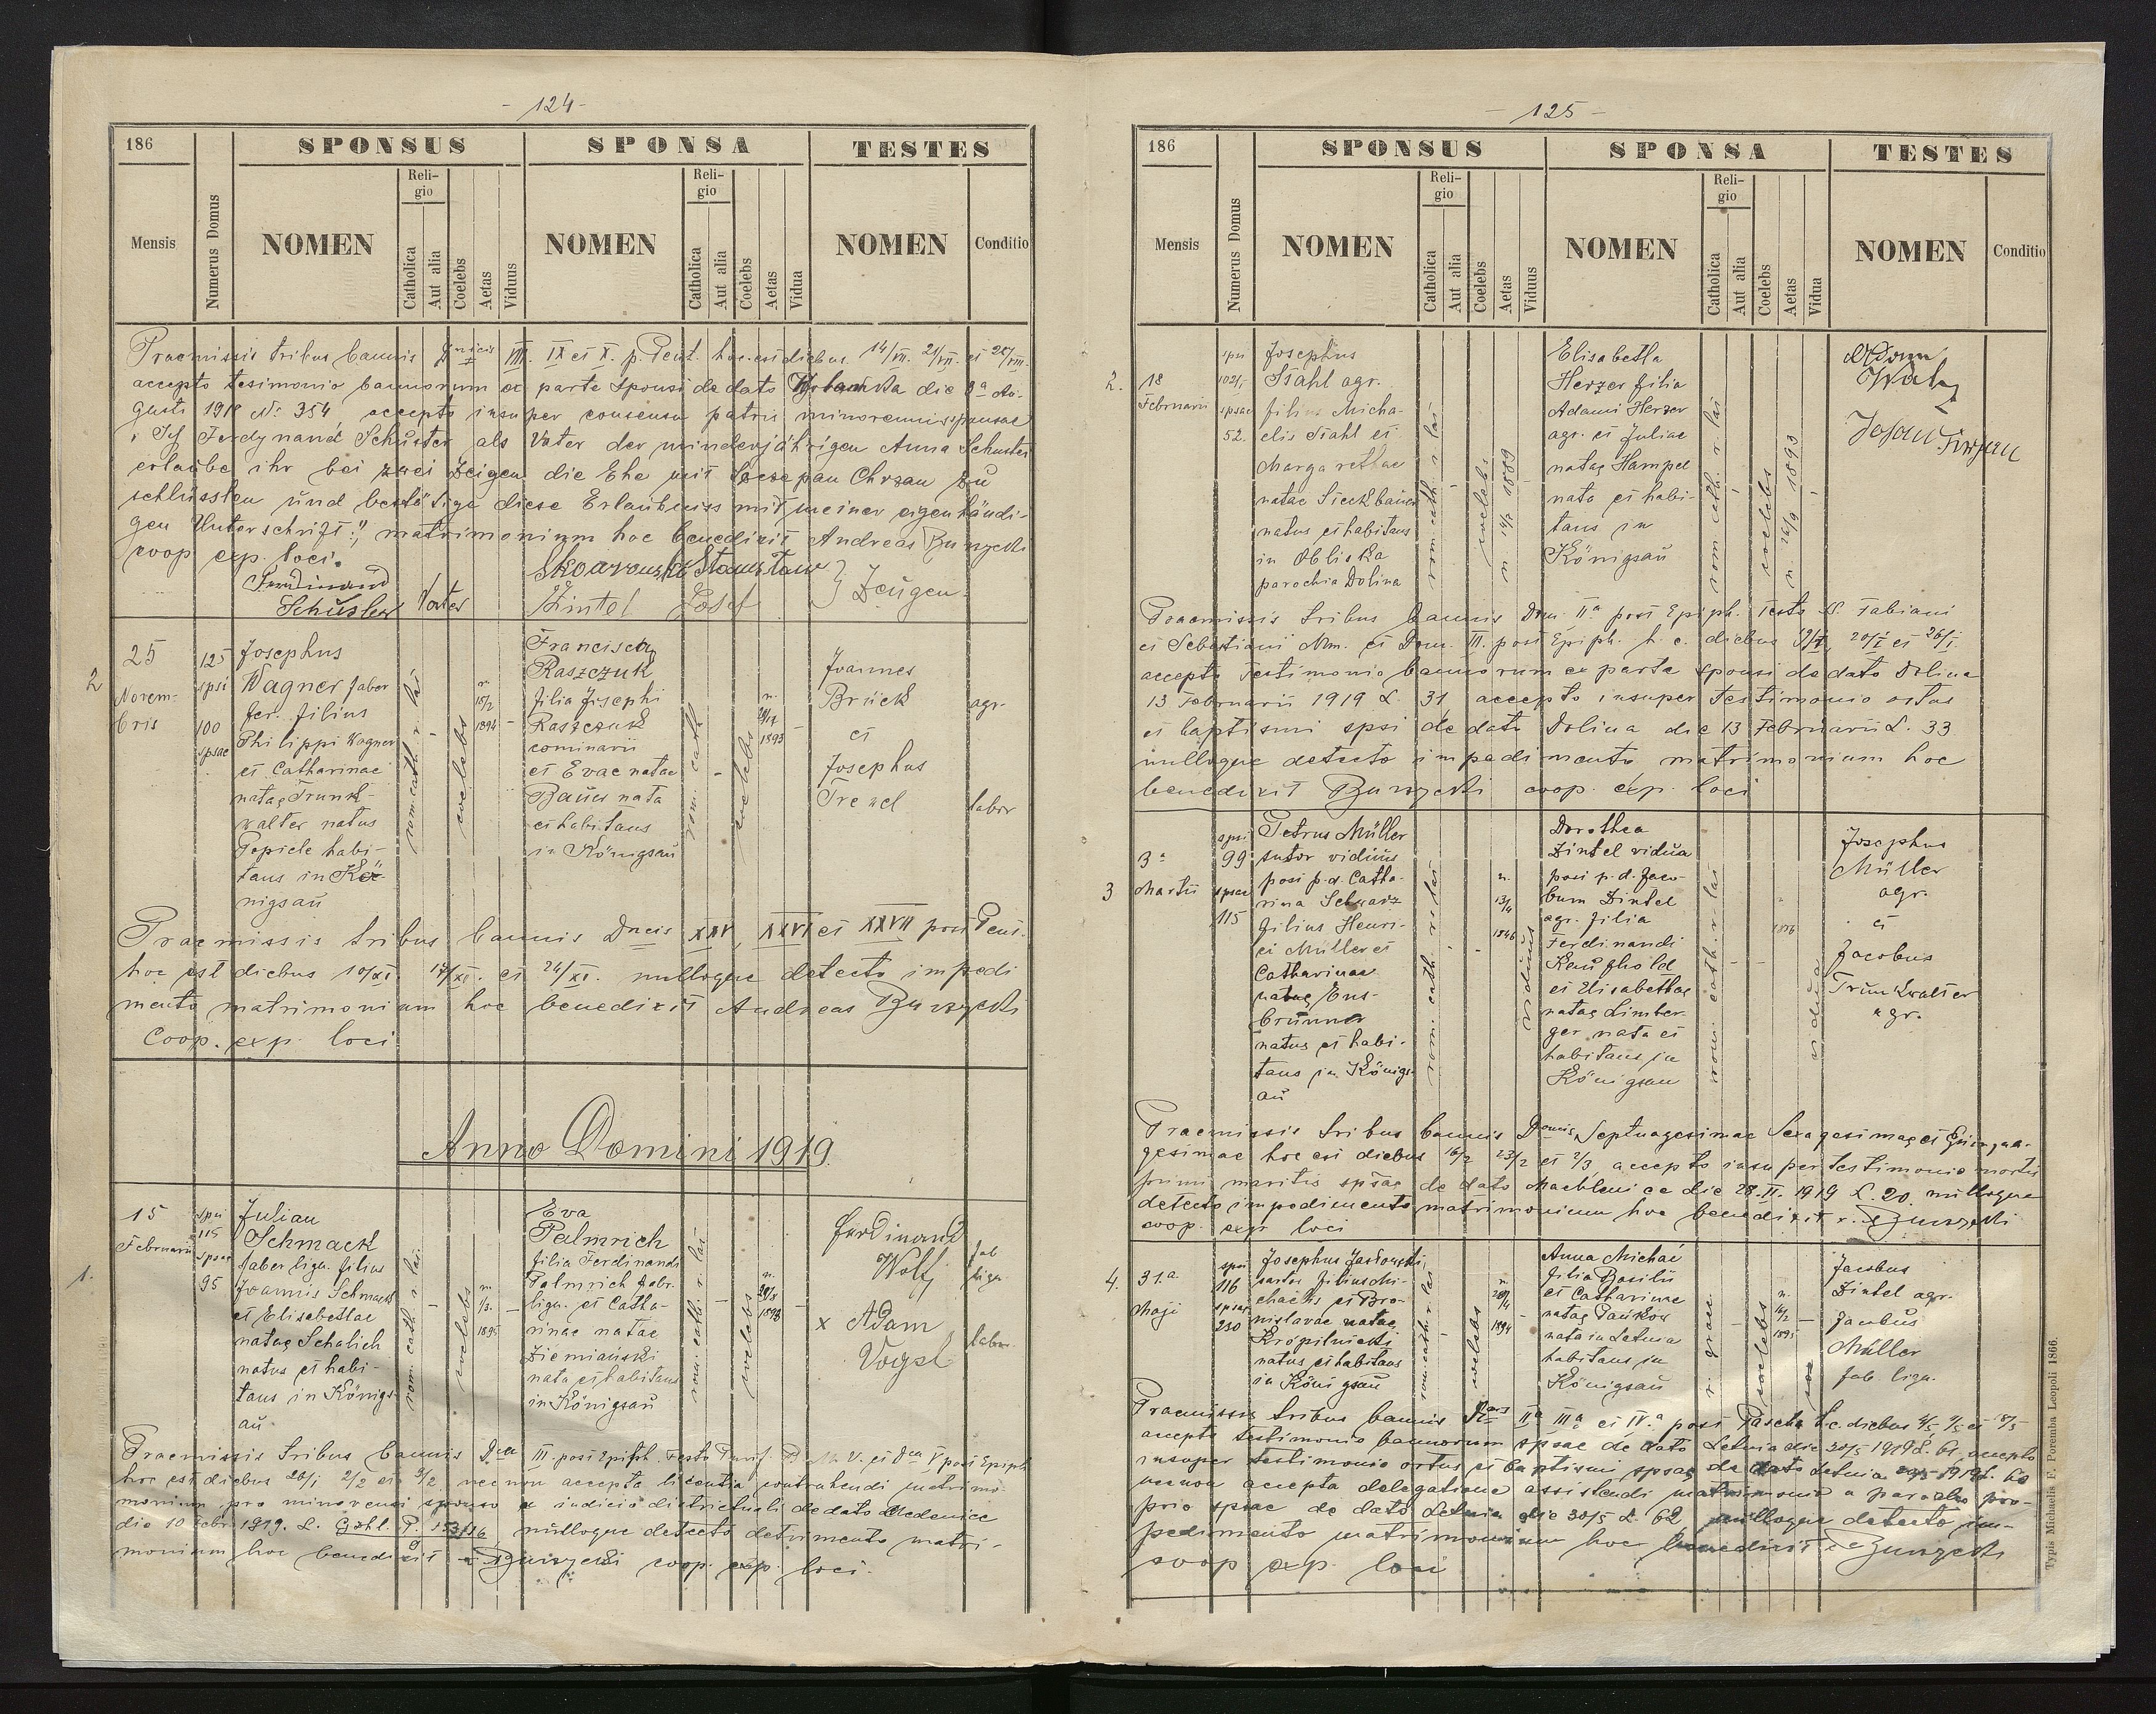 - 124 -
186
SPONSUS
SPONSA
TESTES
Mensis
Numerus Domus
NOMEN
Religio
Catholica
Aut alia
Coelebs
Aetas
Viduus
NOMEN
Religio
Catholica
Aut alia
Coelebs
Aetas
Vidua
NOMEN
Conditio
Praemissis tribus bannis VIII. IX et X. p. Pent. hoc est diebus 14/VII. 21/VII. et 28/VII.
accepto tesimonio bannorum ex parte sponsi de dato die 8a Au-
gusti 1918 No: 354, accepto insuper consensu patris minorennis sponsae
Ich Ferdynand Schuster als Vater der minderjährigen Anna Schuster
erlaube ihr bei zwei Zeigen die Ehe mit Szczepan Chrzan zu
schlüssten und bestötige diese Erlaubniss mit meiner eigenhändi-
gen Unterschrift", matrimonium hoc benedixit Andreas
coop exp. loci.
Ferdinand
Schuster Vater
Stanisław
Zintel Josef
} Zeugen
2
25
Novem-
bris
125
spsi
100
spsae
Josephus
Wagner faber
fer. filius
Philippi Wagner
et Catharinae
natae Trunk-
walter natus
Popiele habi-
tans in Kö-
nigsau
rom. cath. r. lat.
coelebs
n.
15/2
1894
Francisca
Raszczuk
filia Josephi
Raszczuk
cominarii
et Evae natae
Bauer nata
et habitans
in Königsau
rom. cath.
coelebs
n.
1893
Joannes
Brück
agr.
et
Josephus
Trexel
labor
Praemissis tribus bannis Dneis XXV, XXVI et XXVII post Pent.
hoc est diebus 10/XI. 17/XI. et 24/XI. nulloque detecto impedi
mento matrimonium hoc benedixit Andreas
Coop. exp. loci
Anno Domini 1919.
1.
15
Februarii
spsi
115
spsae
95
Julian
Schmack
faber lign. filius
Joannis Schmack
et Elisabethae
natae Schalich
natus et habi-
tans in Königs-
au
rom. cath. r. lat.
coelebs
n.
1/3.
1895
Eva
Palmrich
filia Ferdinandi
Palmrich fabr.
lign. et Catha-
rinae natae
Ziemiański
nata et habitans
in Königsau
rom. cath. r. lat.
coelebs
n.
1898
Ferdinand
Wolf
fab
lign.
x Adam
Vogel
labor.
Praemissis tribus bannis Dca III. post Epiph. Festo Purif. B. M. V. et Dca V post Epiph.
hoc est diebus 26/1 2/2 et 9/2, nec non accepta licentia contrahendi matrimo-
monium pro minorenni sponso a iudicio districtuali de dato Medenice
die 10 Febr. 1919. L. Czhl. P. 153/16, nulloque detecto detrimento matri-
monium hoc benedixit coop. exp. loci.
- 125 -
186
SPONSUS
SPONSA
TESTES
Mensis
Numerus Domus
NOMEN
Religio
Catholica
Aut alia
Coelebs
Aetas
Viduus
NOMEN
Religio
Catholica
Aut alia
Coelebs
Aetas
Vidua
NOMEN
Conditio
2.
18
Februarii
spsi
102/1
spsae
52.
Josephus
Stahl agr.
filius Micha-
elis Stahl et
Margarethae
natae Steckbauer
natus et habitans
in Obliska
parochia Dolina
rom. cath. r. lat.
coelebs
n. 14/7 1889
Elisabetha
Herzer filia
Adami Herzer
agr. et Juliae
natae Hampel
nata et habi-
tans in
Königsau
rom cath. r. lat
coelebs
n. 26/9 1893
Adam
Johann
Praemissis tribus bannis Dom IIa post Epiph. Festo S. Fabiani
et Sebastiani Mm. et Dom. III. post Epiph. h. e. diebus 19/I, 20/I et 26/I.
accepto testimonio bannorum ex parte sponsi de dato Dolina
13 Februarii 1919 L. 31, accepto insuper testimonio ortus
et baptismi spsi de dato Dolina die 13 Februarii L. 33
nulloque detecto impedimento, matrimonium hoc
benedixit coop. exp. loci
3
3a
Martii
spsi
99
spsae
115
Petrus Müller
sutor viduus
post p. d. Catha-
rina Schwarz
filius Henri-
ci Müller et
Catharinae
natae Ens-
brunner
natus et habi-
tans in Königs-
au
rom. cath. r. lat.
n.
13/4
1846
viduus
Dorothea
Zintel vidua
post p. d. Jaco-
bum Zintel
agr. filia
Ferdinandi
Kaufhold
et Elisabethae
natae Limber-
ger nata et
habitans in
Königsau
rom. cath. r. lat
1876
vidua
Josephus
Müller
agr.
et
Jacobus
Trunkwalter
agr.
Praemissis tribus bannis Domcis Septuagesimae Sexagesimae et Quinqua-
gesimae hoc est diebus 16/2 23/2 et 2/3, accepto insuper testimonio mortis
primi maritis spsae de dato die 28. II. 1919 L. 20. nulloque
detecto impedimento matrimonium hoc benedixit
coop. exp loci
4.
31.a
Maji
spsi
116
spsae
230
Josephus Jasłowski,
sartor filius Mi-
chaelis et Bro-
nislavae natae
Kropilnicki
natus et habitans
in Königsau
rom. cath. r. lat
coelebs
n.
1894
Anna Michać
filia Basilii
et Catharinae
natae Pańków
nata in Letnia
habitans in
Königsau
r. graec.
coelebs
n.
14/2
1895
Jacobus
Zintel agr.
Jacobus
Müller
fab. lign.
Praemissis tribus bannis IIa IIIa et IV.a post Pascha h. e. diebus 4/5, 11/5 et 18/5
accepto testimonio bannorum spsae de dato Letnia die 30/5 1919 L. 61, accepto
insuper testimonio ortus et baptismi spsae de dato Letnia 1919 L. 60
necnon accepta delegatione assistendi matrimonio a parocho pro-
prio spsae de dato Letnia die 30/5 L. 62 nulloque detecto im-
pedimento matrimonium hoc benedixit
coop exp. loci
Typis Michaelis F. Poremba Leopoli 1866.